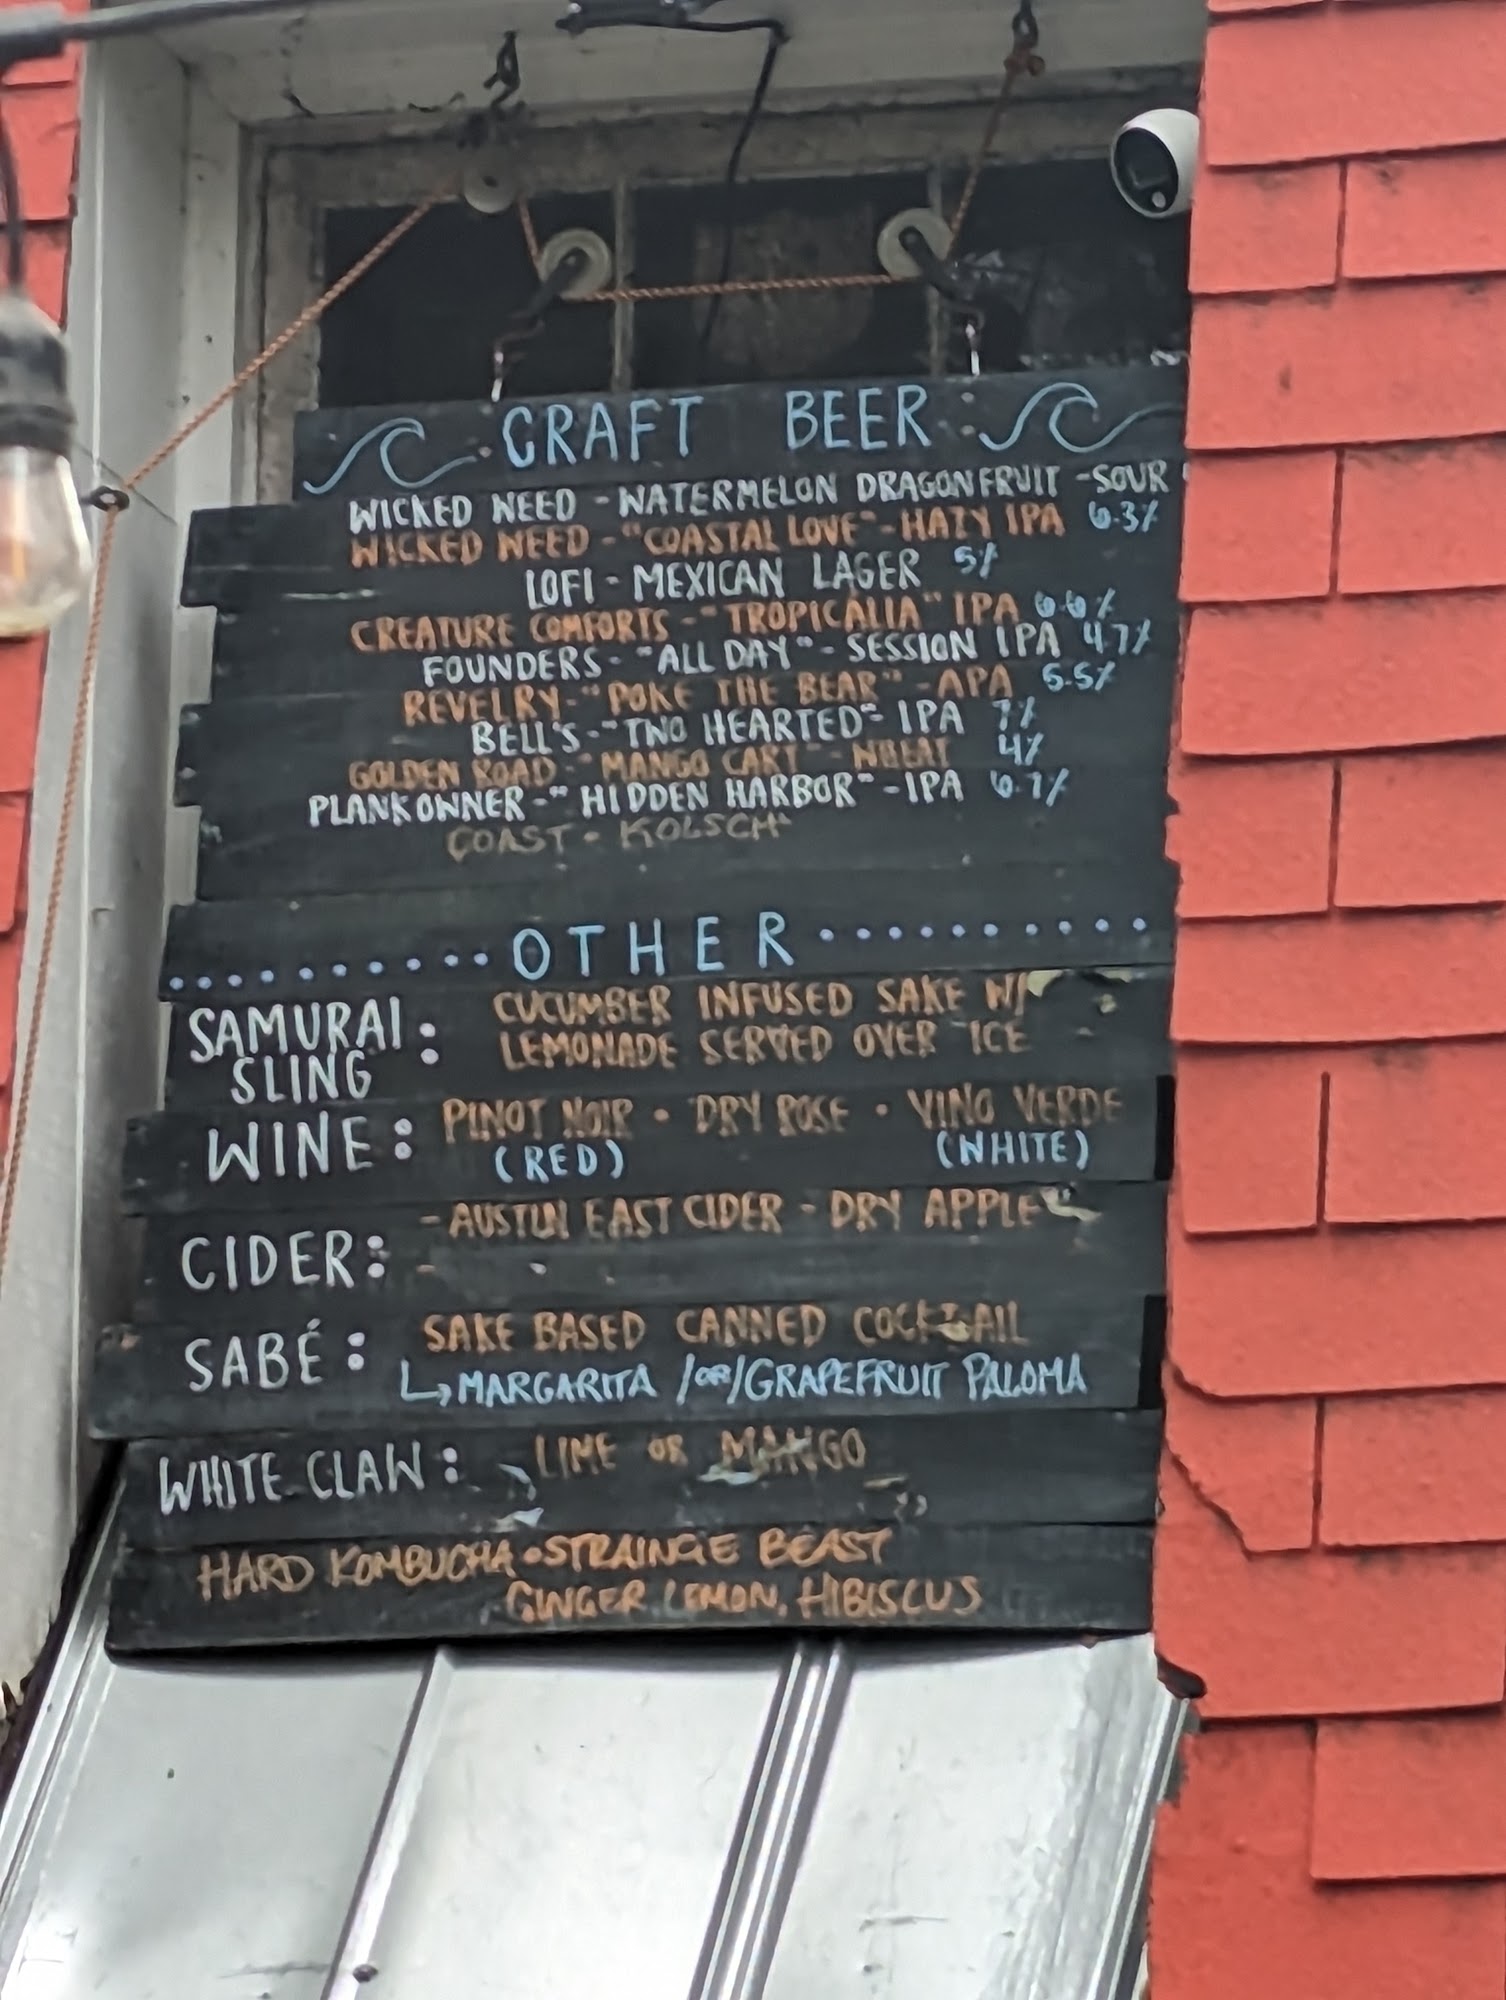 CRAFT BEER
WICKED WEED - WATERMELON DRAGONFRUIT - SOUR
WICKED WEED - "COASTAL LOVE" - HAZY IPA 6.3%
LOFI - MEXICAN LAGER 5%
CREATURE COMFORTS - "TROPICALIA" IPA 6.6%
FOUNDERS - "ALL DAY" - SESSION IPA 4.7%
REVELRY - "POKE THE BEAR" - APA 5.5%
BELL'S - "TWO HEARTED" - IPA 7%
GOLDEN ROAD - "MANGO CART" - WHEAT 4%
PLANKOWNER - "HIDDEN HARBOR" - IPA 6.7%
COAST - KOLSCH
OTHER
SAMURAI SLING: CUCUMBER INFUSED SAKE W/
LEMONADE SERVED OVER ICE
WINE: PINOT NOIR • DRY ROSE • VINO VERDE
(RED) (WHITE)
CIDER: - AUSTIN EAST CIDER - DRY APPLE
SABÉ: SAKE BASED CANNED COCKTAIL
↳ MARGARITA /OR/ GRAPEFRUIT PALOMA
WHITE CLAW: LIME OR MANGO
HARD KOMBUCHA • STRAINGE BEAST
GINGER LEMON, HIBISCUS